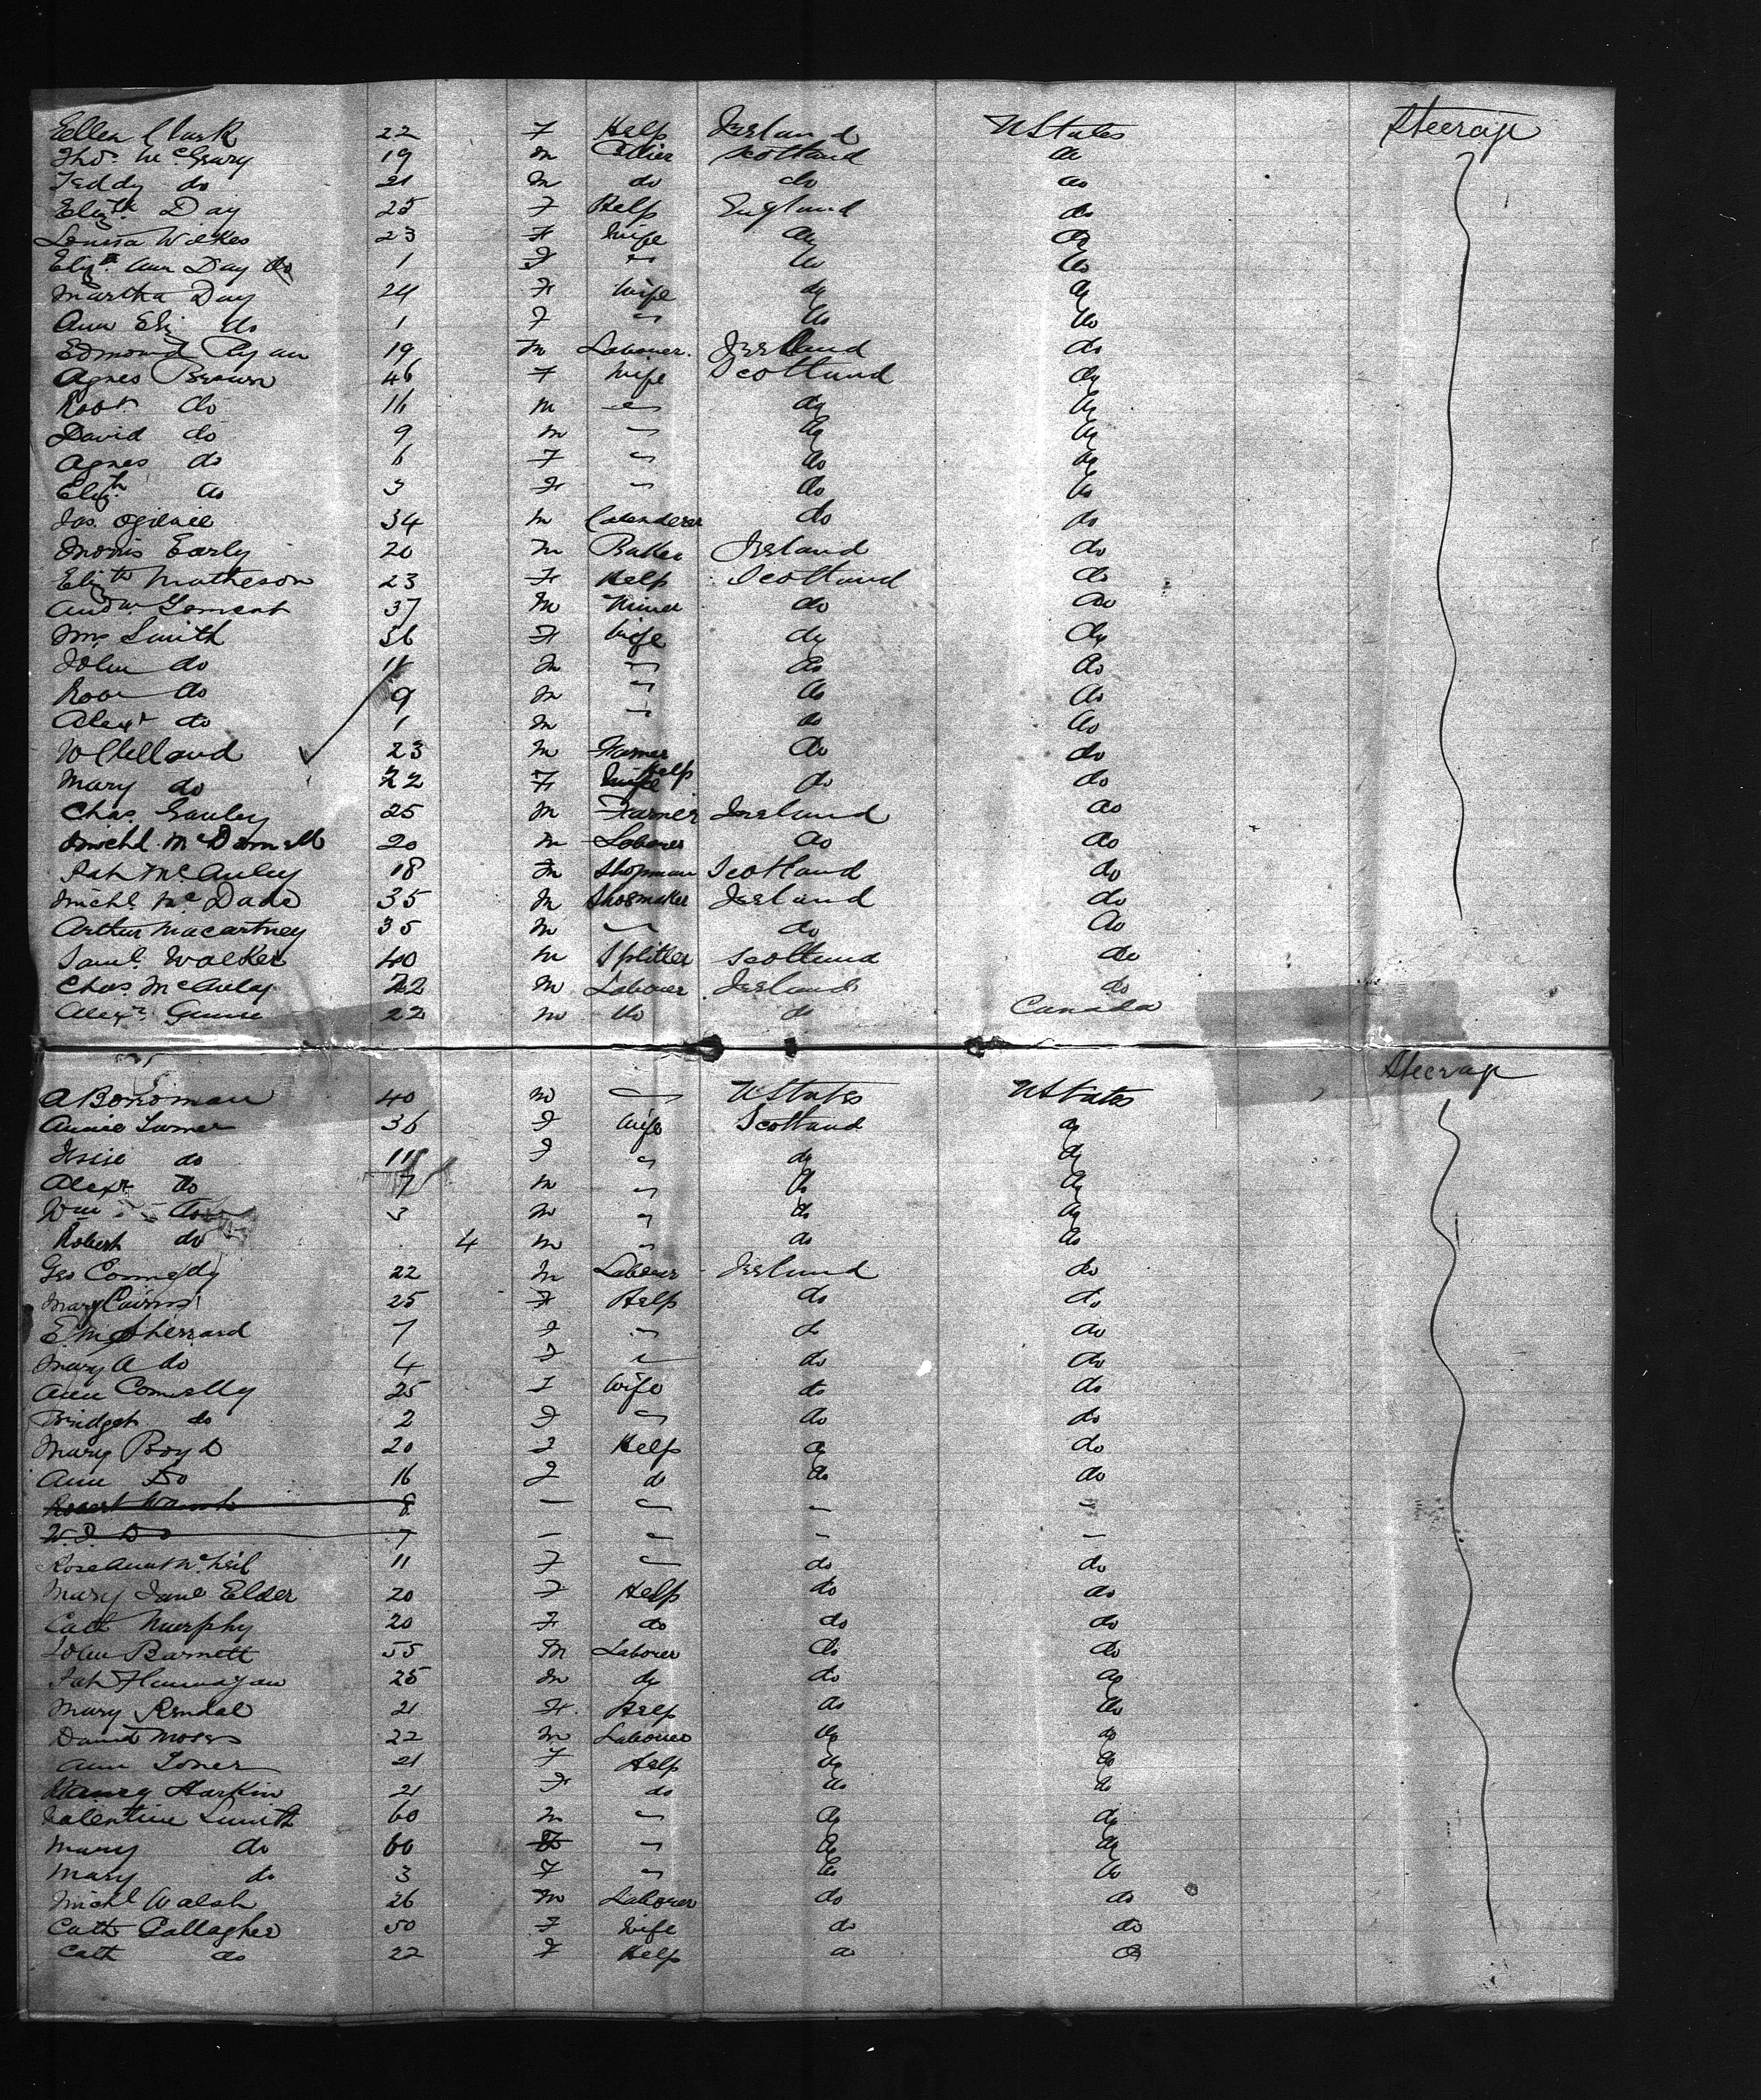 Ellen Clark 22 F Help Ireland U States Steerage
Thos. McGeary 19 M Collier Scotland do
Teddy do 21 M do do do
Elizth Day 25 F Help England do
Louisa Wilkes 23 F Wife do do
Elizth Ann Day do 1 F " do do
Martha Day 24 F Wife do do
Ann Eliz do 1 F " do do
Edmond Ryan 19 M Labourer. Ireland do
Agnes Brown 46 F Wife Scotland do
Robt do 11 M " do do
David do 9 M " do do
Agnes do 6 F " do do
Elizth do 3 F " do do
Jas. Ogilvie 34 M Calenderer do do
Morris Early 20 M Baker Ireland do
Elizth Matheson 23 F Help Scotland do
Andw 37 M Miner do do
Mrs Smith 36 F Wife do do
John do 11 M " do do
Robt do 9 M " do do
Alexr do 1 M " do do
W Clelland 23 M Farmer do do
Mary do 22 F Wife Help do do
Chas. Gauley 25 M Farmer Ireland do
Michl. McDonnell 20 M Laborer do do
Pat McAuley 18 M Shopman Scotland do
Michl McDade 35 M Shoemaker Ireland do
Arthur Macartney 35 M " do do
Saml. Walker 40 M Splitter Scotland do
Chas. McAulay 22 M Labourer Ireland do
Alexr. Gunn 22 M do do Canada
Steerage
A Bordman 40 M " U States U States
Annie Turner 36 F Wife Scotland do
Jessie do 11 F " do do
Alexr do 7 M " do do
Wm do 3 M " do do
Robert do 4 M " do do
Geo Connelly 22 M Labourer Ireland do
Mary Cairns 25 F Help do do
E. M Sherrard 7 F " do do
Mary A do 4 F " do do
Ann Connelly 25 F Wife do do
Bridget do 2 F " do do
Mary Boyd 20 F Help do do
Ann Do 16 F do do do
Robert 8 — " — —
W. J. Do 7 — " — —
Rose Ann McNeil 11 F " do do
Mary Jane Elder 20 F Help do do
Cath Murphy 20 F do do do
John Barnett 55 M Laborer do do
Pat Flannagan 25 M do do do
Mary Rendal 21 F. Help do do
David Moses 22 M Labourer do do
Ann Toner 21 F Help do do
Harkin 21 F do do do
Valentine Smith 60 M " do do
Mary do 60 F " do do
Mary do 3 F " do do
Michl Walsh 26 M Laborer do do
Cath Gallagher 50 F Wife do do
Cath do 22 F Help do do